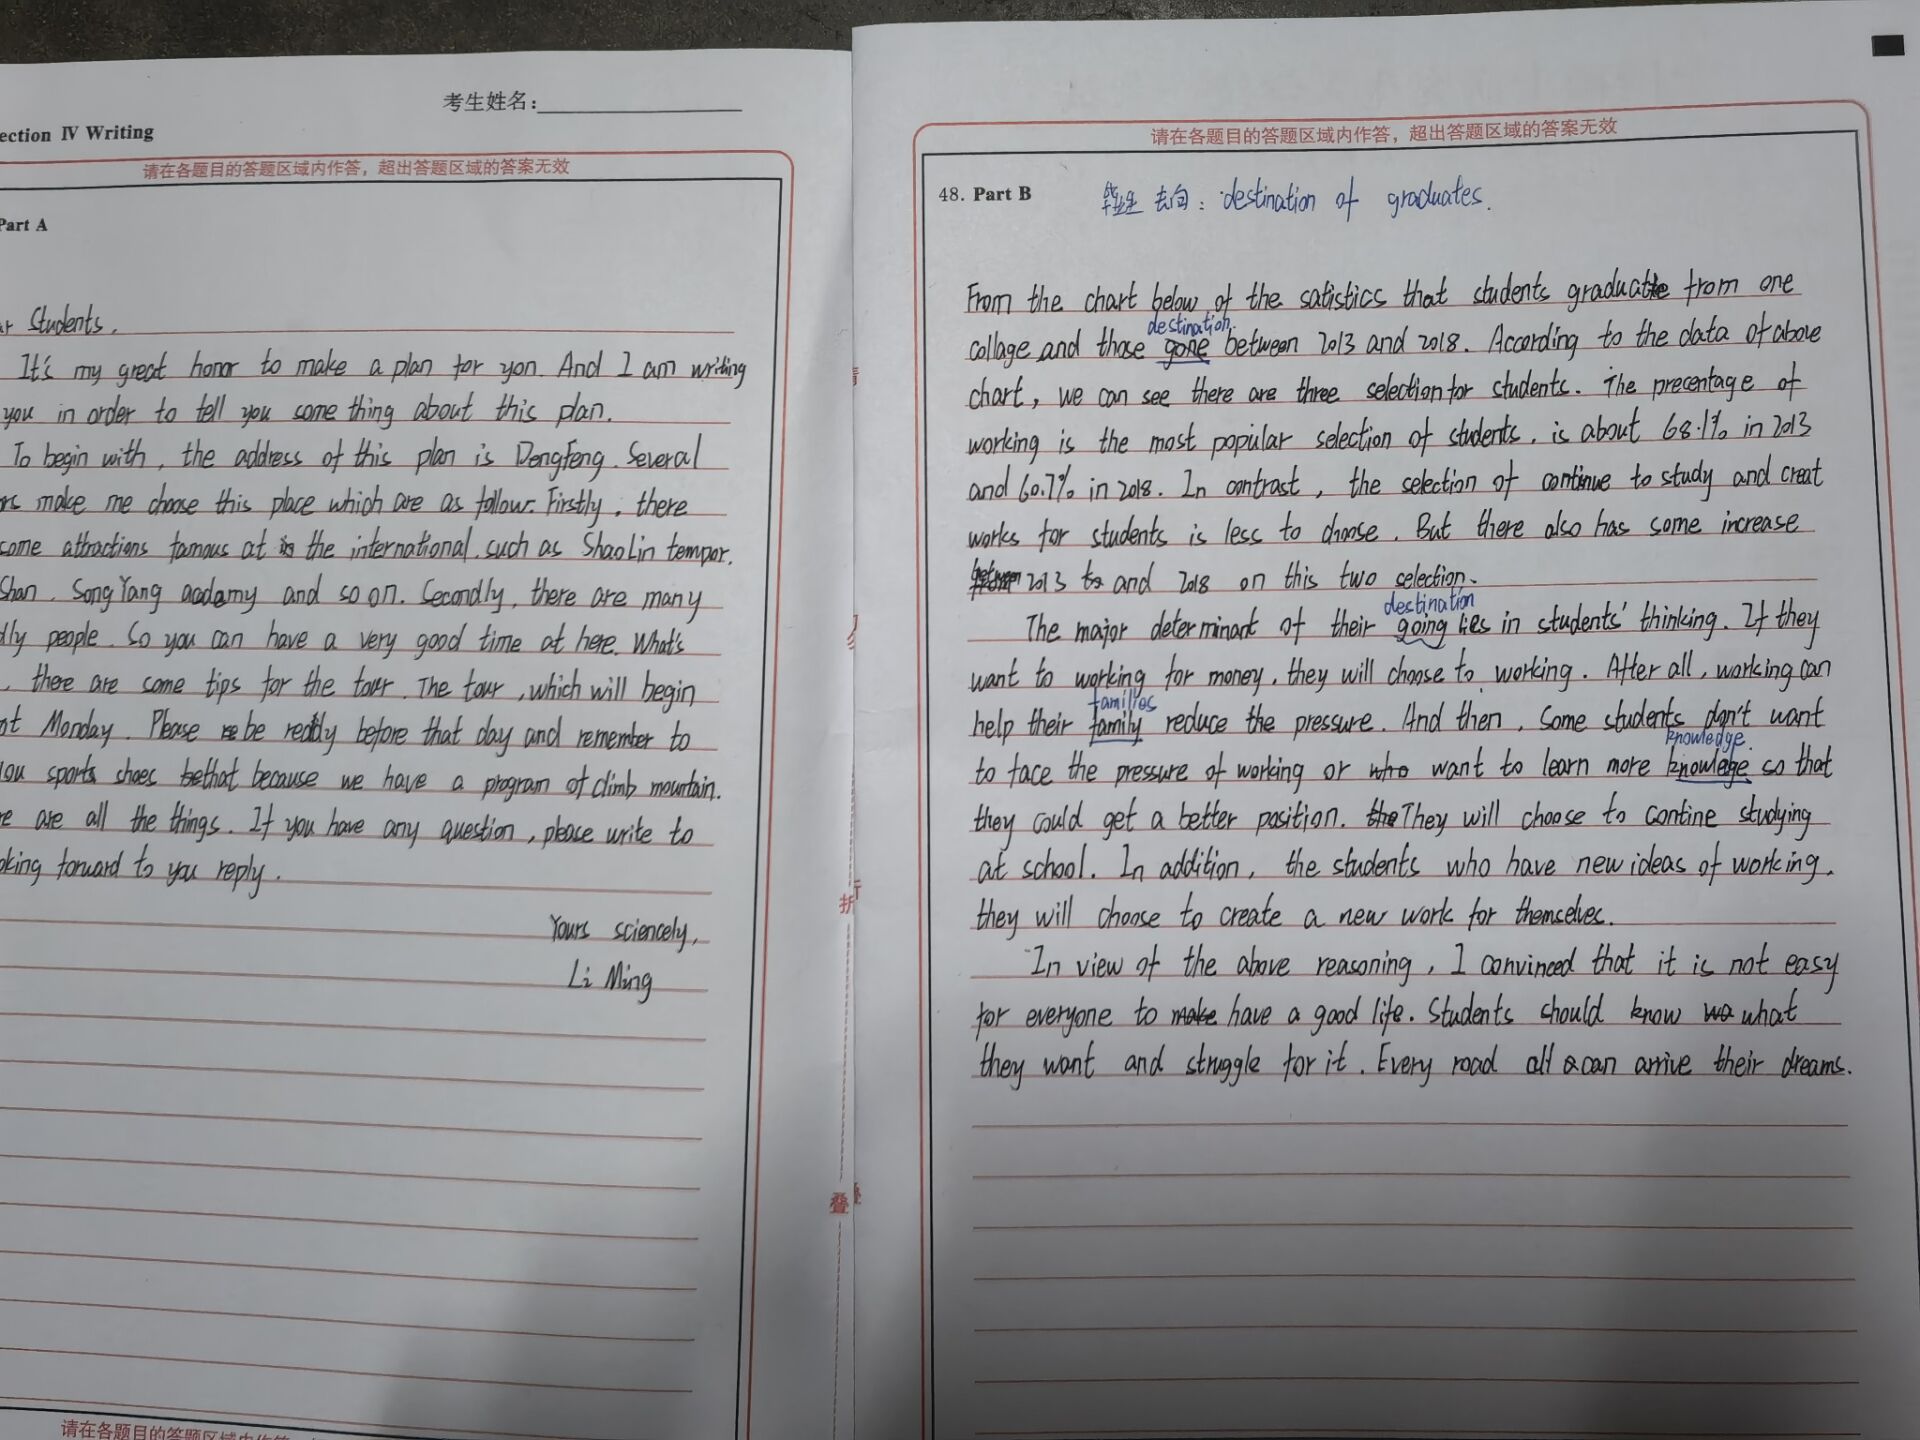 考生姓名：
ection IV Writing
请在各题目的答题区域内作答，超出答题区域的答案无效
Part A
Students,
It's my great honor to make a plan for yon. And I am writing
you in order to tell you some thing about this plan.
To begin with, the address of this plan is Dengfeng. Several
make me choose this place which are as follow: Firstly, there
some attractions famous at the international, such as ShaoLin tempor.
Shan, SongYang acadamy and so on. Secondly, there are many
dly people. So you can have a very good time at here. What's
, there are some tips for the tour. The tour, which will begin
at Monday. Please be ready before that day and remember to
sports shoes that because we have a program of climb mountain.
re are all the things. If you have any question, please write to
oking forward to you reply.
Yours sciencely,
Li Ming
请在各题目的答题区域内作
折
叠
请在各题目的答题区域内作答，超出答题区域的答案无效
48. Part B
毕业生去向: destination of graduates.
From the chart below of the satistics that students graduate from one
destination
collage and those gone between 2013 and 2018. According to the data of above
chart, we can see there are three selection for students. The precentage of
working is the most popular selection of students, is about 68.1% in 2013
and 60.7% in 2018. In contrast, the selection of continue to study and creat
works for students is less to choose. But there also has some increase
2013 and 2018 on this two selection.
destination
The major determinant of their going lies in students' thinking. If they
want to working for money, they will choose to working. After all, working can
families
help their family reduce the pressure. And then, Some students don't want
knowledge.
to face the pressure of working or want to learn more knowlege so that
they could get a better position. They will choose to contine studying
at school. In addition, the students who have new ideas of working,
they will choose to create a new work for themselves.
In view of the above reasoning, I convinced that it is not easy
for everyone to make have a good life. Students should know what
they want and struggle for it. Every road all can arrive their dreams.